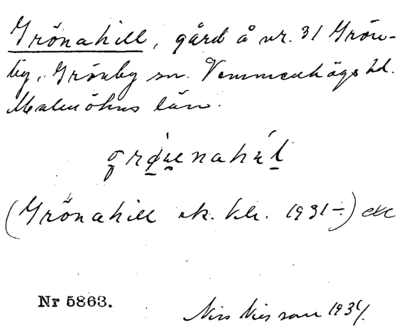 Grönahill, gård å nr. 31 Grön-
by, Grönby sn. Vemmenhögs hd.
Malmöhus län.
(Grönahill sk. kh. 1931–)
Nr 5863.
Nils Nilsson 1934.